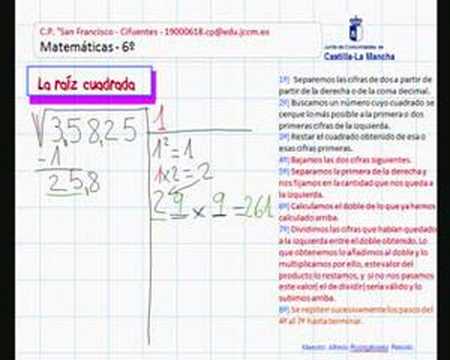 C.P. "San Francisco - Cifuentes - 19000618.cp@edu.jccm.es
Matemáticas - 6º
Junta de Comunidades de
Castilla-La Mancha
La raíz cuadrada
√3,58,25 1
-1
25,8
1²=1
1x2=2
29 x 9 =261
1º) Separemos las cifras de dos a partir de
partir de la derecha o de la coma decimal.
2º) Buscamos un número cuyo cuadrado se
cerque lo más posible a la primera o dos
primeras cifras de la izquierda.
3º) Restar el cuadrado obtenido de esa o
esas cifras primeras.
4º) Bajamos las dos cifras siguientes.
5º) Separamos la primera de la derecha y
nos fijamos en la cantidad que nos queda a
la izquierda.
6º) Calculamos el doble de lo que ya hemos
calculado arriba.
7º) Dividimos las cifras que habían quedado
a la izquierda entre el doble obtenido. Lo
que obtenemos lo añadimos al doble y lo
multiplicamos por ello, este valor del
producto lo restamos, y si no nos pasamos
este valor( el de dividir) sería válido y lo
subimos arriba.
8º) Se repiten sucesivamente los pasos del
4º al 7º hasta terminar.
Maestro: Alfredo